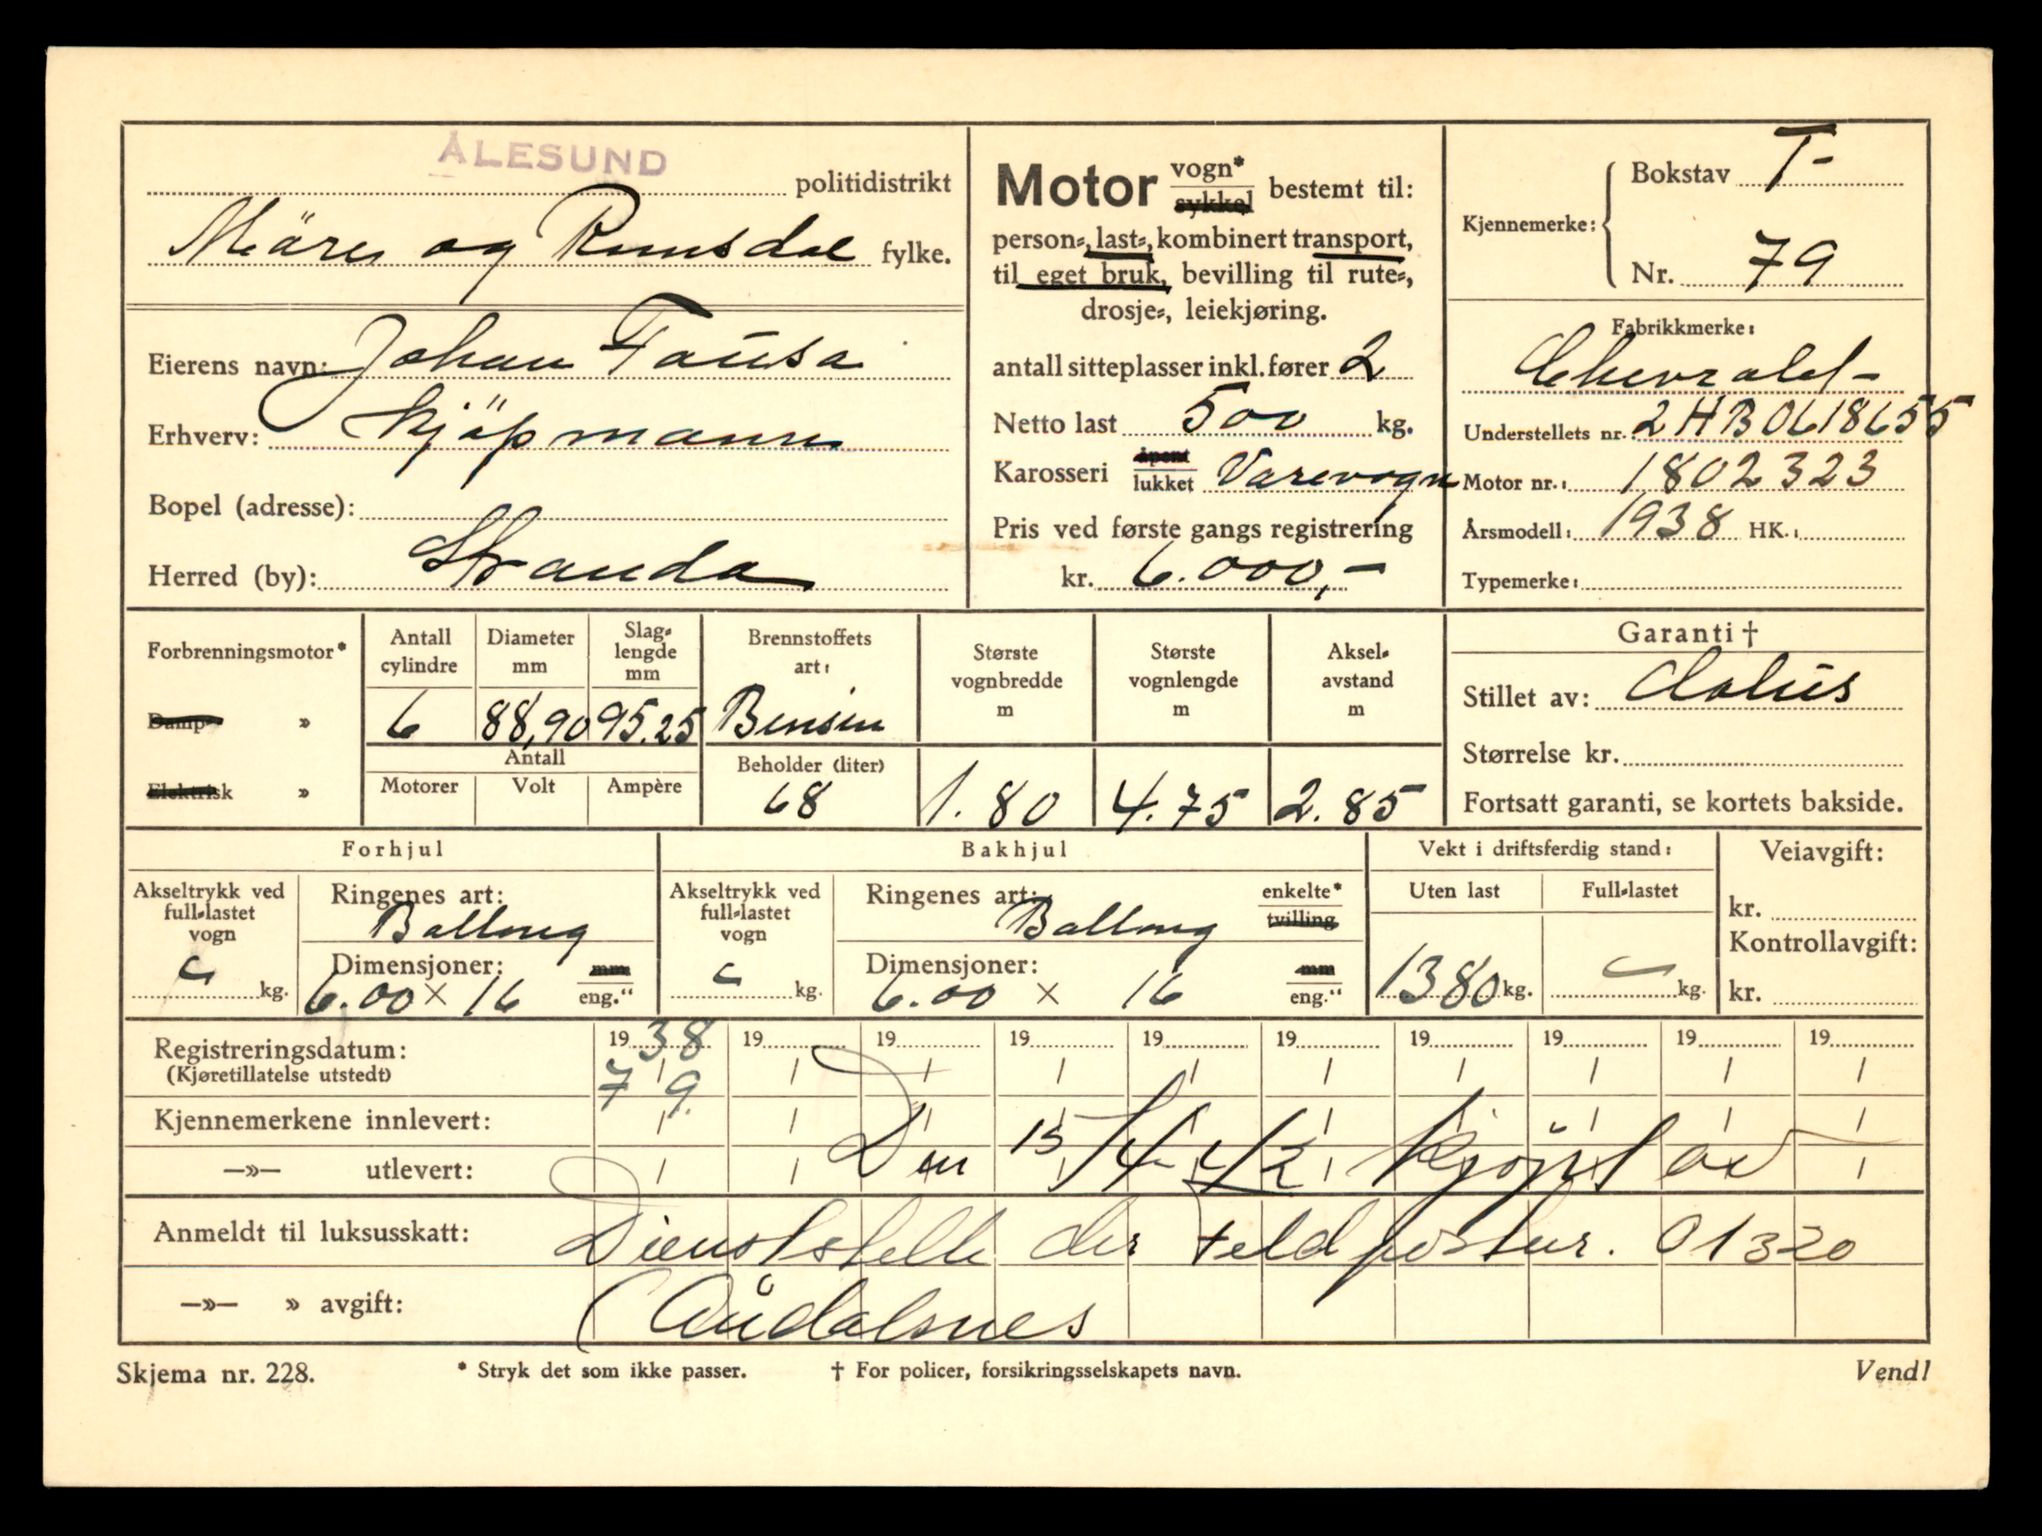 ÅLESUND politidistrikt
Möre og Romsdal fylke.
Eierens navn: Johan Fausa
Erhverv: Kjöpmann
Bopel (adresse):
Herred (by): Stranda
Motor vogn* sykkel bestemt til:
person-, last-, kombinert transport,
til eget bruk, bevilling til rute-,
drosje-, leiekjøring.
antall sitteplasser inkl. fører 2
Netto last 500 kg.
Karosseri åpent lukket Varevogn
Pris ved første gangs registrering
kr. 6.000,-
Kjennemerke: Bokstav T-
Nr. 79
Fabrikkmerke:
Chevrolet-
Understellets nr.: 2HB0618655
Motor nr.: 1802323
Årsmodell: 1938 HK.:
Typemerke:
Forbrenningsmotor*
Damp- »
Elektrisk »
Antall cylindre
6
Diameter mm
88,90
Slag-lengde mm
95.25
Antall
Motorer Volt Ampère
Brennstoffets art:
Bensin
Beholder (liter)
68
Største vognbredde m
1.80
Største vognlengde m
4.75
Aksel-avstand m
2.85
Garanti †
Stillet av: Æolus
Størrelse kr.
Fortsatt garanti, se kortets bakside.
Forhjul
Akseltrykk ved full-lastet vogn
kg.
Ringenes art:
Ballong
Dimensjoner: mm
6.00 × 16 eng."
Bakhjul
Akseltrykk ved full-lastet vogn
kg.
Ringenes art: enkelte* tvilling
Ballong
Dimensjoner: mm
6.00 × 16 eng."
Vekt i driftsferdig stand:
Uten last Full-lastet
1380 kg. kg.
Veiavgift:
kr.
Kontrollavgift:
kr.
Registreringsdatum: 1938 19 19 19 19 19 19 19 19 19
(Kjøretillatelse utstedt) 7/9.
Kjennemerkene innlevert:
—»— utlevert:
Den 15/4-42 kjöpt av
Anmeldt til luksusskatt:
Dienststelle der Feldpostnr. 01320
—»— » avgift:
(Åndalsnes
Skjema nr. 228.
* Stryk det som ikke passer.
† For policer, forsikringsselskapets navn.
Vend!